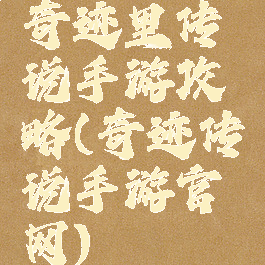 奇迹里传
说手游攻
略(奇迹传
说手游官
网)